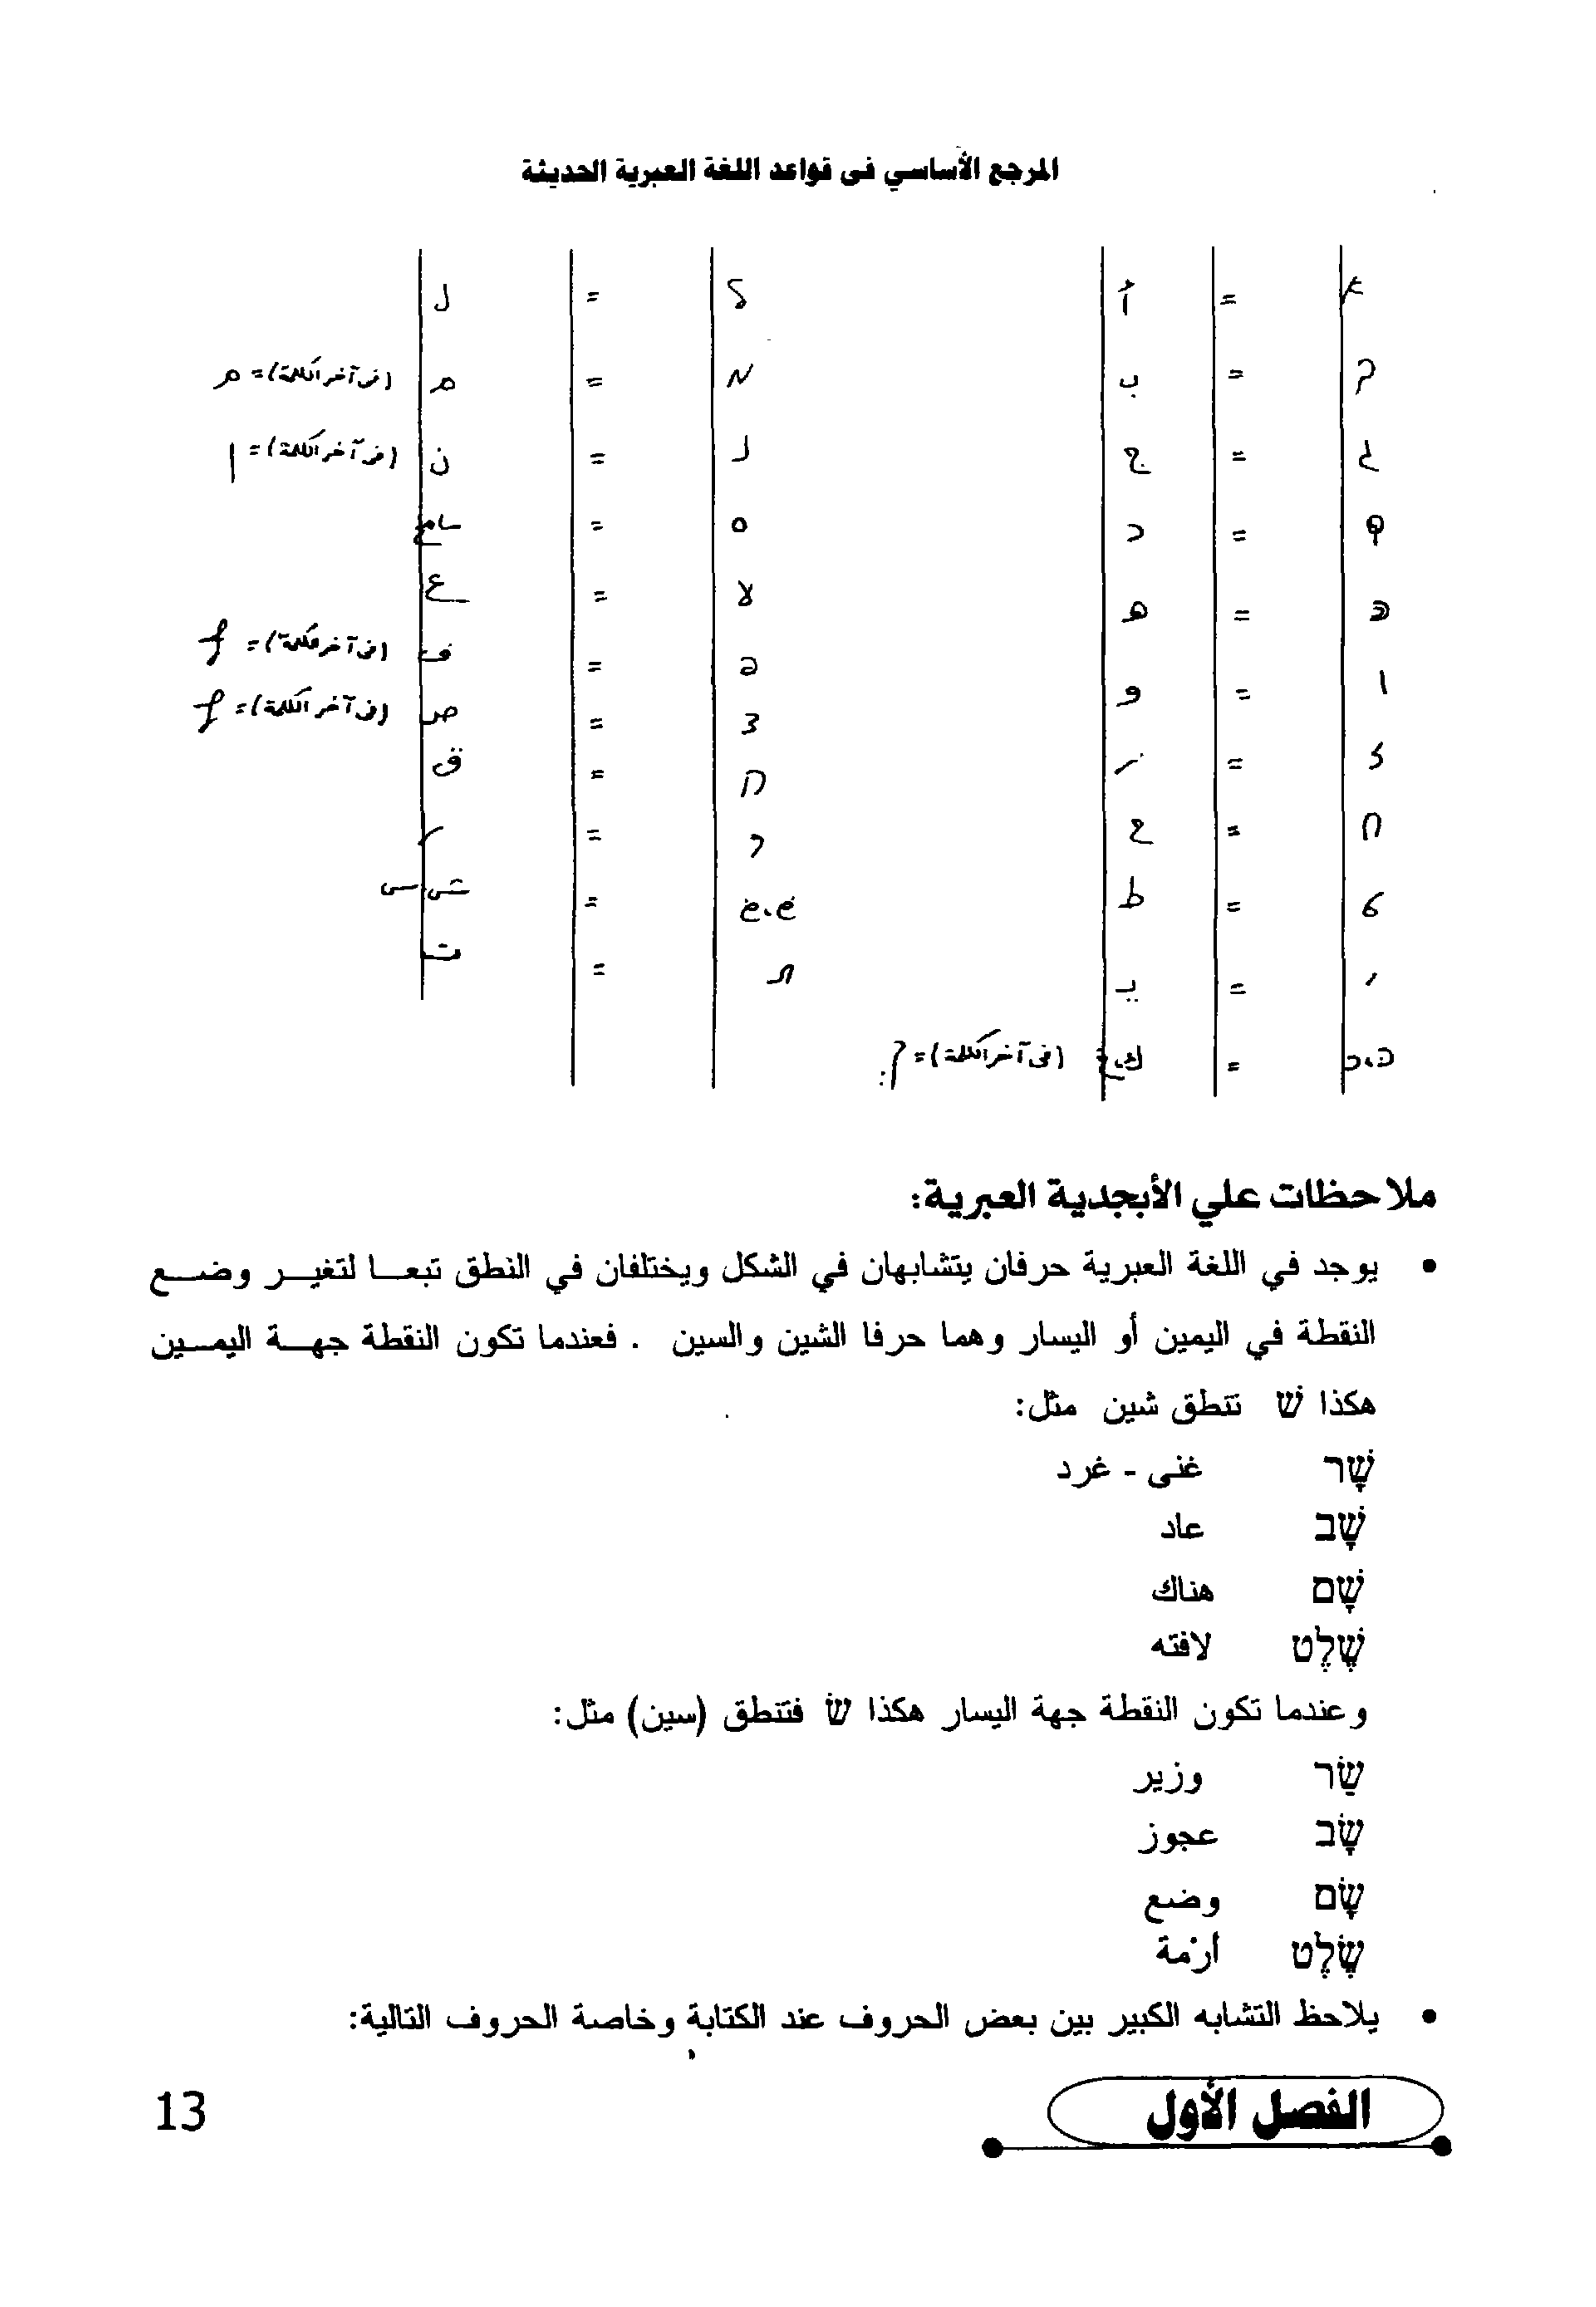 المرجع الأساسي فى قواعد اللغة العبرية الحديثة
א = أ
ב = ب
ג = ج
ד = د
ה = ه
ו = و
ז = ز
ח = ح
ט = ط
י = يـ
כּ، כ = ك، خ (فى آخر الكلمة) = ך
ל = ل
מ = م (فى آخر الكلمة) = ם
נ = ن (فى آخر الكلمة) = ן
ס = سامخ
ע = ع
פ = ف (فى آخر الكلمة) = ף
צ = ص (فى آخر الكلمة) = ץ
ק = ق
ר = ر
שׁ، שׂ = ش، س
ת = ت
ملاحظات علي الأبجدية العبرية:
• يوجد في اللغة العبرية حرفان يتشابهان في الشكل ويختلفان في النطق تبعـا لتغيـر وضـع
النقطة في اليمين أو اليسار وهما حرفا الشين والسين . فعندما تكون النقطة جهـة اليمـين
هكذا שׁ تنطق شين مثل:
שָׁר غنى - غرد
שָׁב عاد
שָׁם هناك
שֶׁלֶט لافته
وعندما تكون النقطة جهة اليسار هكذا שׂ فتنطق (سين) مثل:
שַׂר وزير
שָׂב عجوز
שָׂם وضع
שֶׂלֶט أزمة
• يلاحظ التشابه الكبير بين بعض الحروف عند الكتابة وخاصة الحروف التالية:
الفصل الأول
13